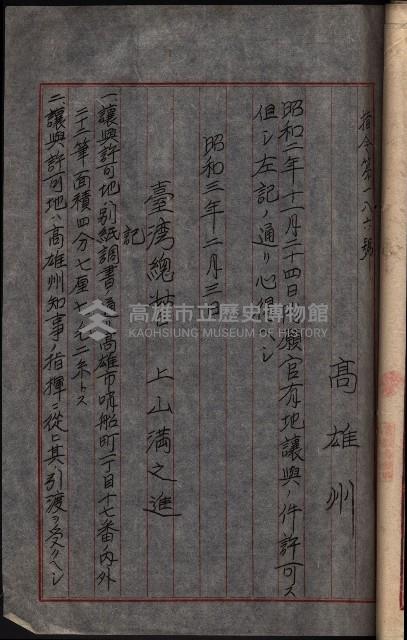 指令第一八六號
高雄州
昭和二年十二月二十四日願官有地讓與ノ件許可ス
但シ左記ノ通リ心得ヘシ
昭和三年二月三日
臺灣總督 上山滿之進
記
一、讓與許可地ハ別紙調書ノ通高雄市哨船町二丁目十七番ノ內外
二十二筆面積四分七厘トス
二、讓與許可地ハ高雄州知事ノ指揮ニ從ヒ其ノ引渡ヲ受クヘシ
高雄市立歷史博物館
KAOHSIUNG MUSEUM OF HISTORY